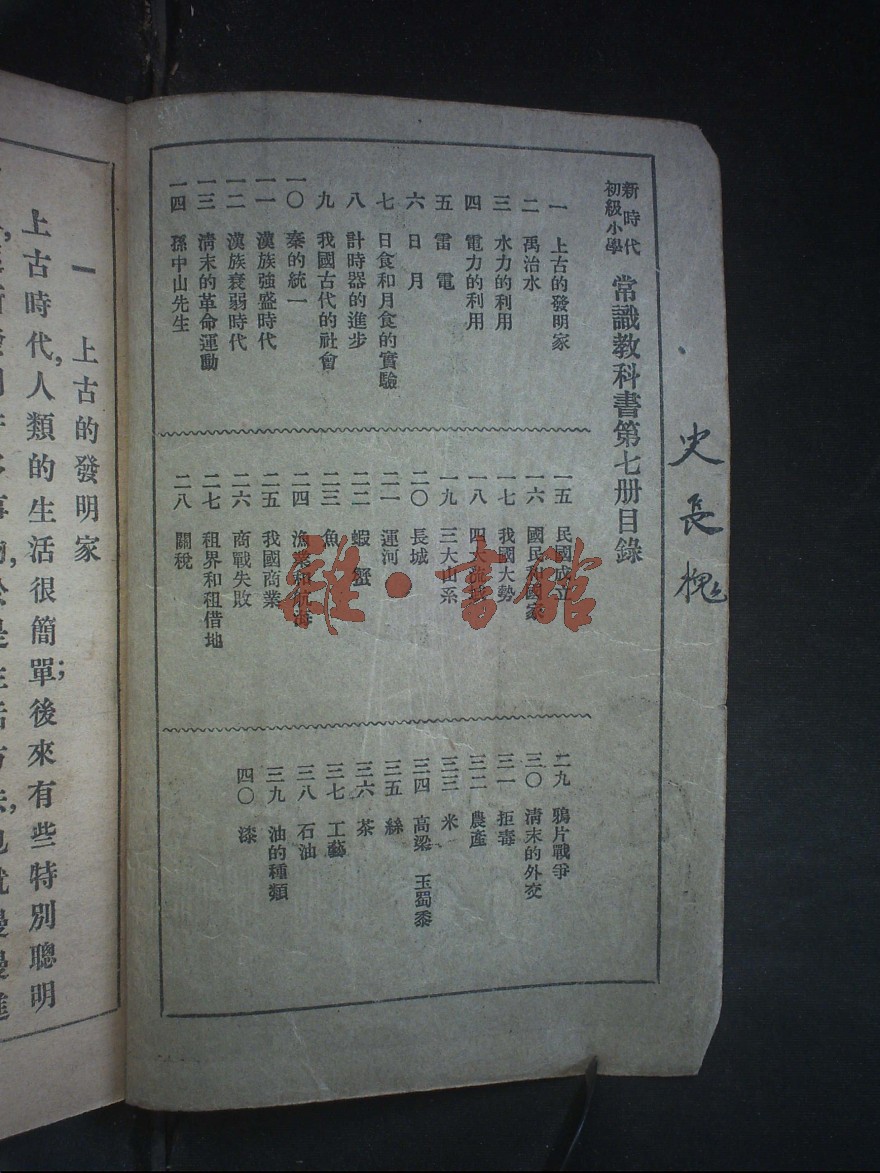 史長槐
新時代
初級小學
常識教科書第七册目錄
一 上古的發明家
二 禹治水
三 水力的利用
四 電力的利用
五 雷 電
六 日 月
七 日食和月食的實驗
八 計時器的進步
九 我國古代的社會
一〇 秦的統一
一一 漢族強盛時代
一二 漢族衰弱時代
一三 清末的革命運動
一四 孫中山先生
一五 民國成立
一六 國民和國家
一七 我國大勢
一八 四大流域
一九 三大山系
二〇 長城
二一 運河
二二 蝦 蟹
二三 魚
二四 漁業和航海
二五 我國商業
二六 商戰失敗
二七 租界和租借地
二八 關稅
二九 鴉片戰爭
三〇 清末的外交
三一 拒毒
三二 農產
三三 米
三四 高梁 玉蜀黍
三五 絲
三六 茶
三七 工藝
三八 石油
三九 油的種類
四〇 漆
雜·書館
一 上古的發明家
上古時代,人類的生活很簡單;後來有些特別聰明